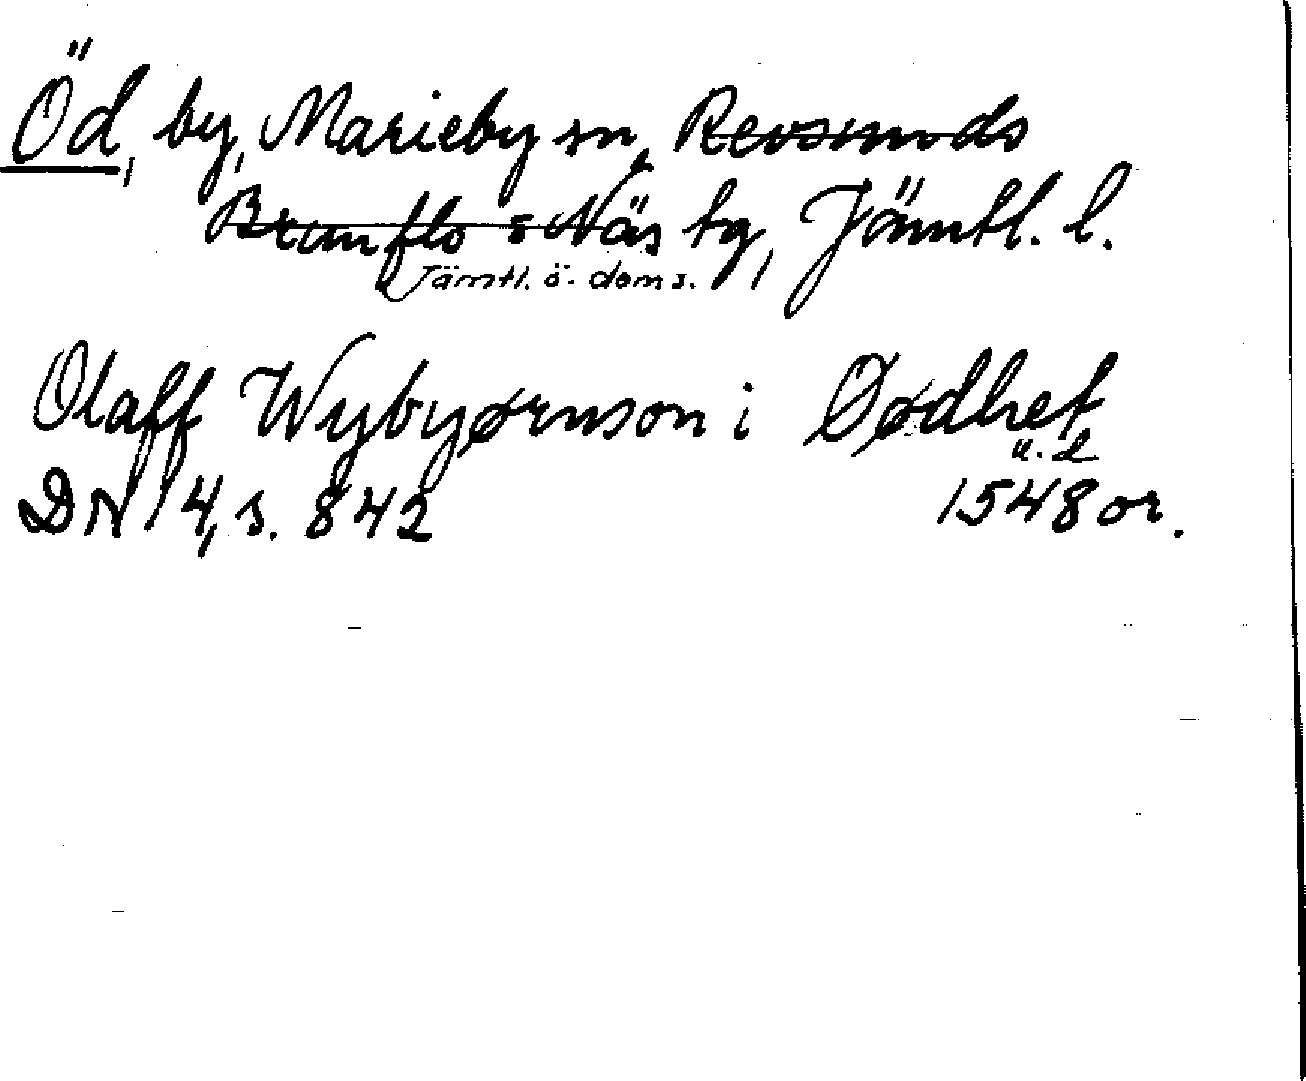 Öd, by, Marieby sn, Revsunds
Brunflo o Näs tg, Jämtl. l.
Jämtl. ö. doms.
Olaff Wybyørnson i Ødødhet
u. d
DN 14, s. 842 1548 or.